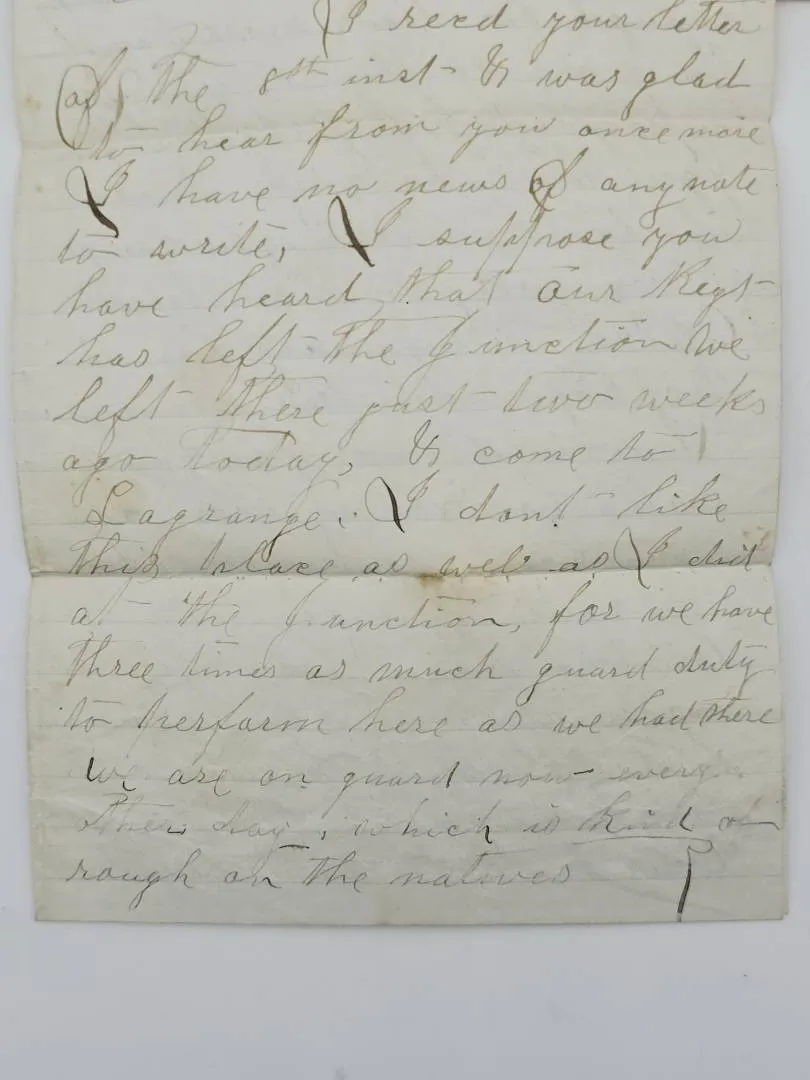 I recd your letter
of the 8th inst & was glad
to hear from you once more
I have no news of any note
to write, I suppose you
have heard that our Regt
has left the Junction We
left there just two weeks
ago today, & come to
Lagrange. I dont like
this place as well as I did
at the Junction, for we have
three times as much guard duty
to perform here as we had there
We are on guard now every
other day, which is kind of
rough on the natives